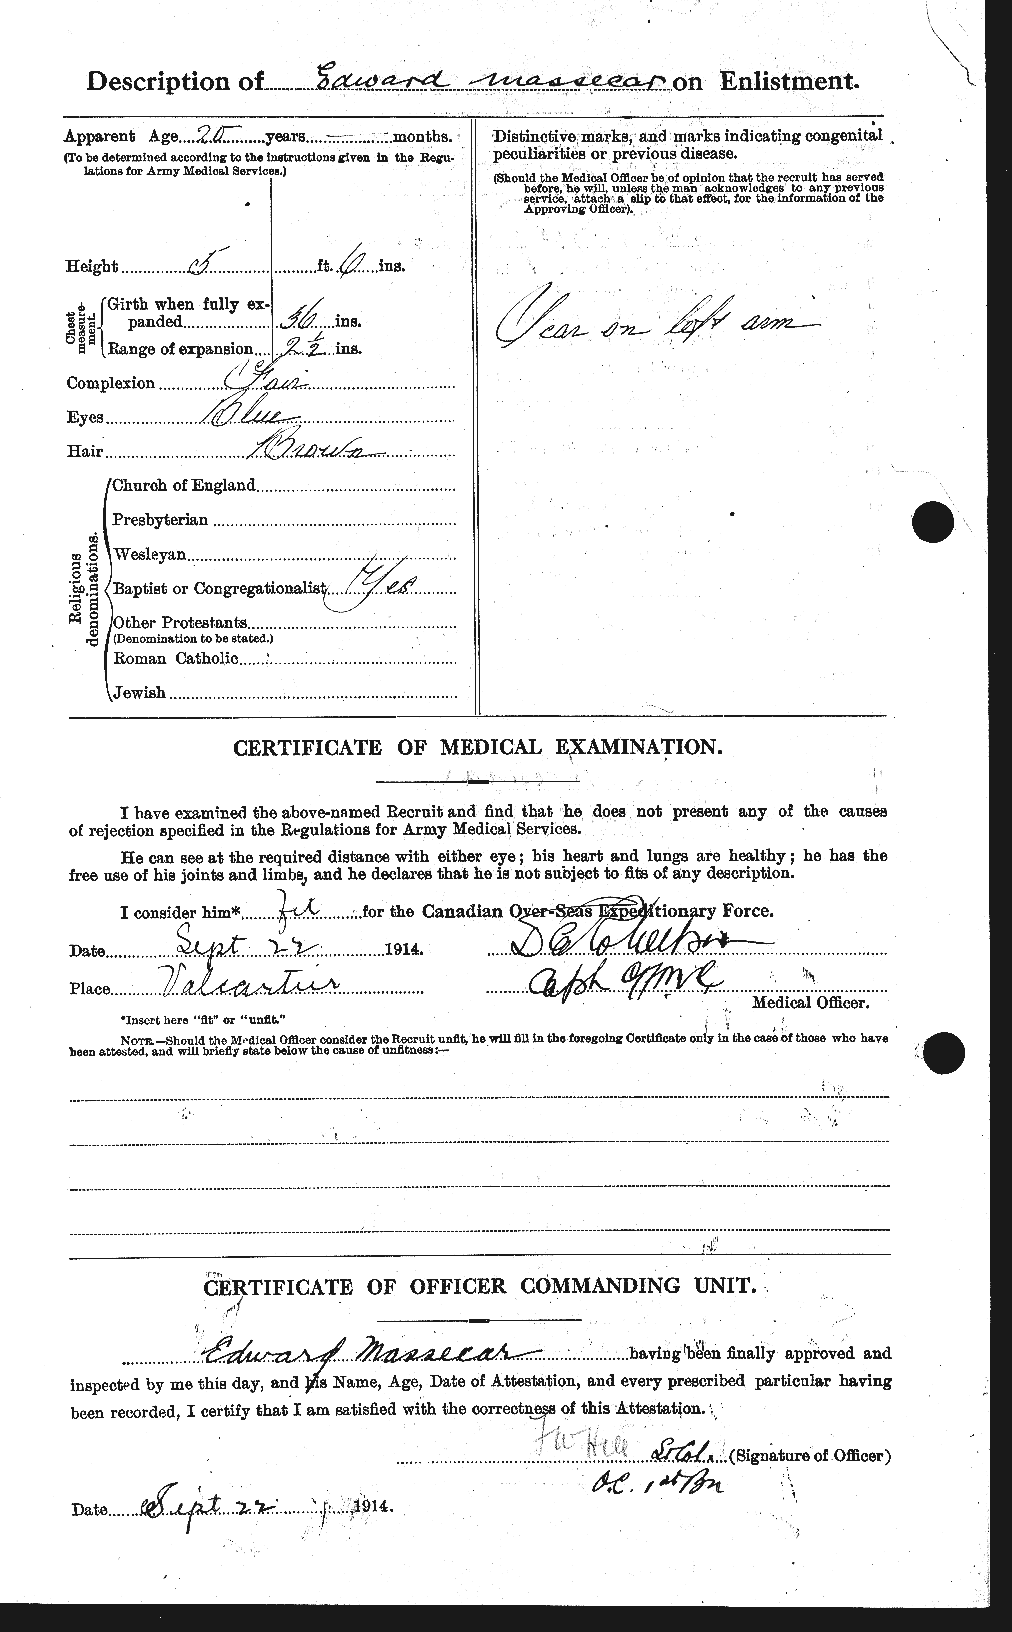 Description of Edward Massecar on Enlistment.
Apparent Age 20 years — months.
(To be determined according to the instructions given in the Regu-
lations for Army Medical Services.)
Height 5 ft. 6 ins.
Chest measure-ment.
Girth when fully ex-
panded 36 ins.
Range of expansion 2 ½ ins.
Complexion Fair
Eyes Blue
Hair Brown
Religious denominations.
Church of England
Presbyterian
Wesleyan
Baptist or Congregationalist Yes
Other Protestants
(Denomination to be stated.)
Roman Catholic
Jewish
Distinctive marks, and marks indicating congenital
peculiarities or previous disease.
(Should the Medical Officer be of opinion that the recruit has served
before, he will, unless the man acknowledges to any previous
service, attach a slip to that effect, for the information of the
Approving Officer).
Scar on left arm
CERTIFICATE OF MEDICAL EXAMINATION.
I have examined the above-named Recruit and find that he does not present any of the causes
of rejection specified in the Regulations for Army Medical Services.
He can see at the required distance with either eye; his heart and lungs are healthy; he has the
free use of his joints and limbs, and he declares that he is not subject to fits of any description.
I consider him* Fit for the Canadian Over-Seas Expeditionary Force.
Date Sept 22 1914.
Place Valcartier
Medical Officer.
*Insert here "fit" or "unfit."
NOTE.—Should the Medical Officer consider the Recruit unfit, he will fill in the foregoing Certificate only in the case of those who have
been attested, and will briefly state below the cause of unfitness:—
CERTIFICATE OF OFFICER COMMANDING UNIT.
Edward Massecar having been finally approved and
inspected by me this day, and his Name, Age, Date of Attestation, and every prescribed particular having
been recorded, I certify that I am satisfied with the correctness of this Attestation.
F W Hill Lt Col. (Signature of Officer)
O.C. 1st Bn
Date Sept 22 1914.